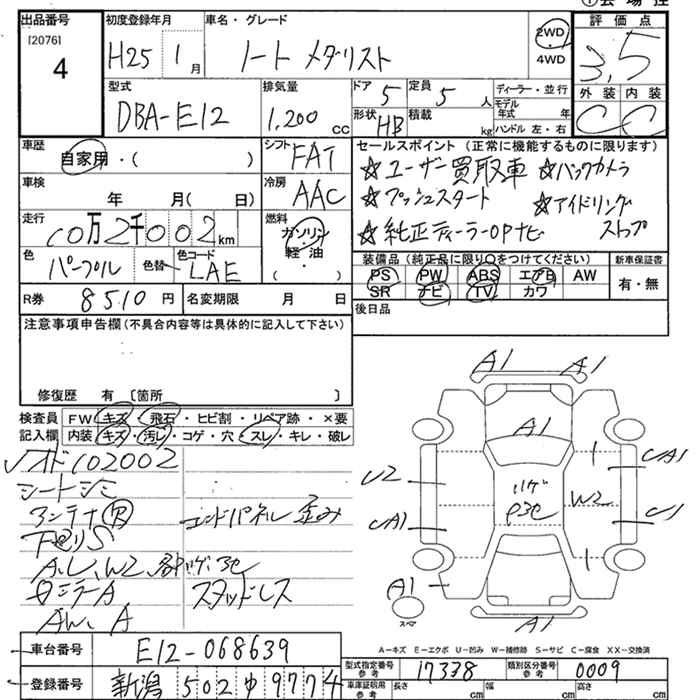 ①会場控
出品番号
[2076]
4
初度登録年月
H25 1月
車名・グレード
ノート メダリスト
2WD
・
4WD
評価点
3.5
外装 内装
C C
型式
DBA-E12
排気量
1,200 cc
ドア 5
定員 5 人
形状 HB
積載 kg
ディーラー・並行
モデル年式 年
ハンドル 左・右
車歴
自家用・( )
シフト FAT
車検
年 月( 日)
冷房 AAC
走行
10万2千002km
燃料
ガソリン
軽油
・( )
色
パープル
色替
色コード
LAE
R券 8510円
名変期限 月 日
セールスポイント (正常に機能するものに限ります)
☆ユーザー買取車 ☆バックカメラ
☆プッシュスタート ☆アイドリング
ストップ
☆純正ディーラーOPナビ
装備品 (純正品に限り○をつけてください)
新車保証書
PS PW ABS エアB AW
SR ナビ TV カワ
有・無
後日品
注意事項申告欄 (不具合内容等は具体的に記入して下さい)
修復歴 有 〔箇所 〕
検査員
記入欄
FW キズ・飛石・ヒビ割・リペア跡・×要
内装 キズ・汚レ・コゲ・穴・スレ・キレ・破レ
メーターオド102002
シートシミ
アンテナ欠
エンドパネル 歪み
下回りS
A、U、W2、各部ハゲ、P3e
スタッドレス
ミラーA
AW、A
車台番号 E12-068639
登録番号 新潟 502 ゆ 9774
A1
A1
A1
U2
UA1
ハゲ
P3e
W2
UA1
U1
A1
スペア
A1
A-キズ E-エクボ U-凹み W-補修跡 S-サビ C-腐食 XX-交換済
型式指定番号 参考 17338
類別区分番号 参考 0009
車庫証明用 参考
長さ cm
幅 cm
高さ cm